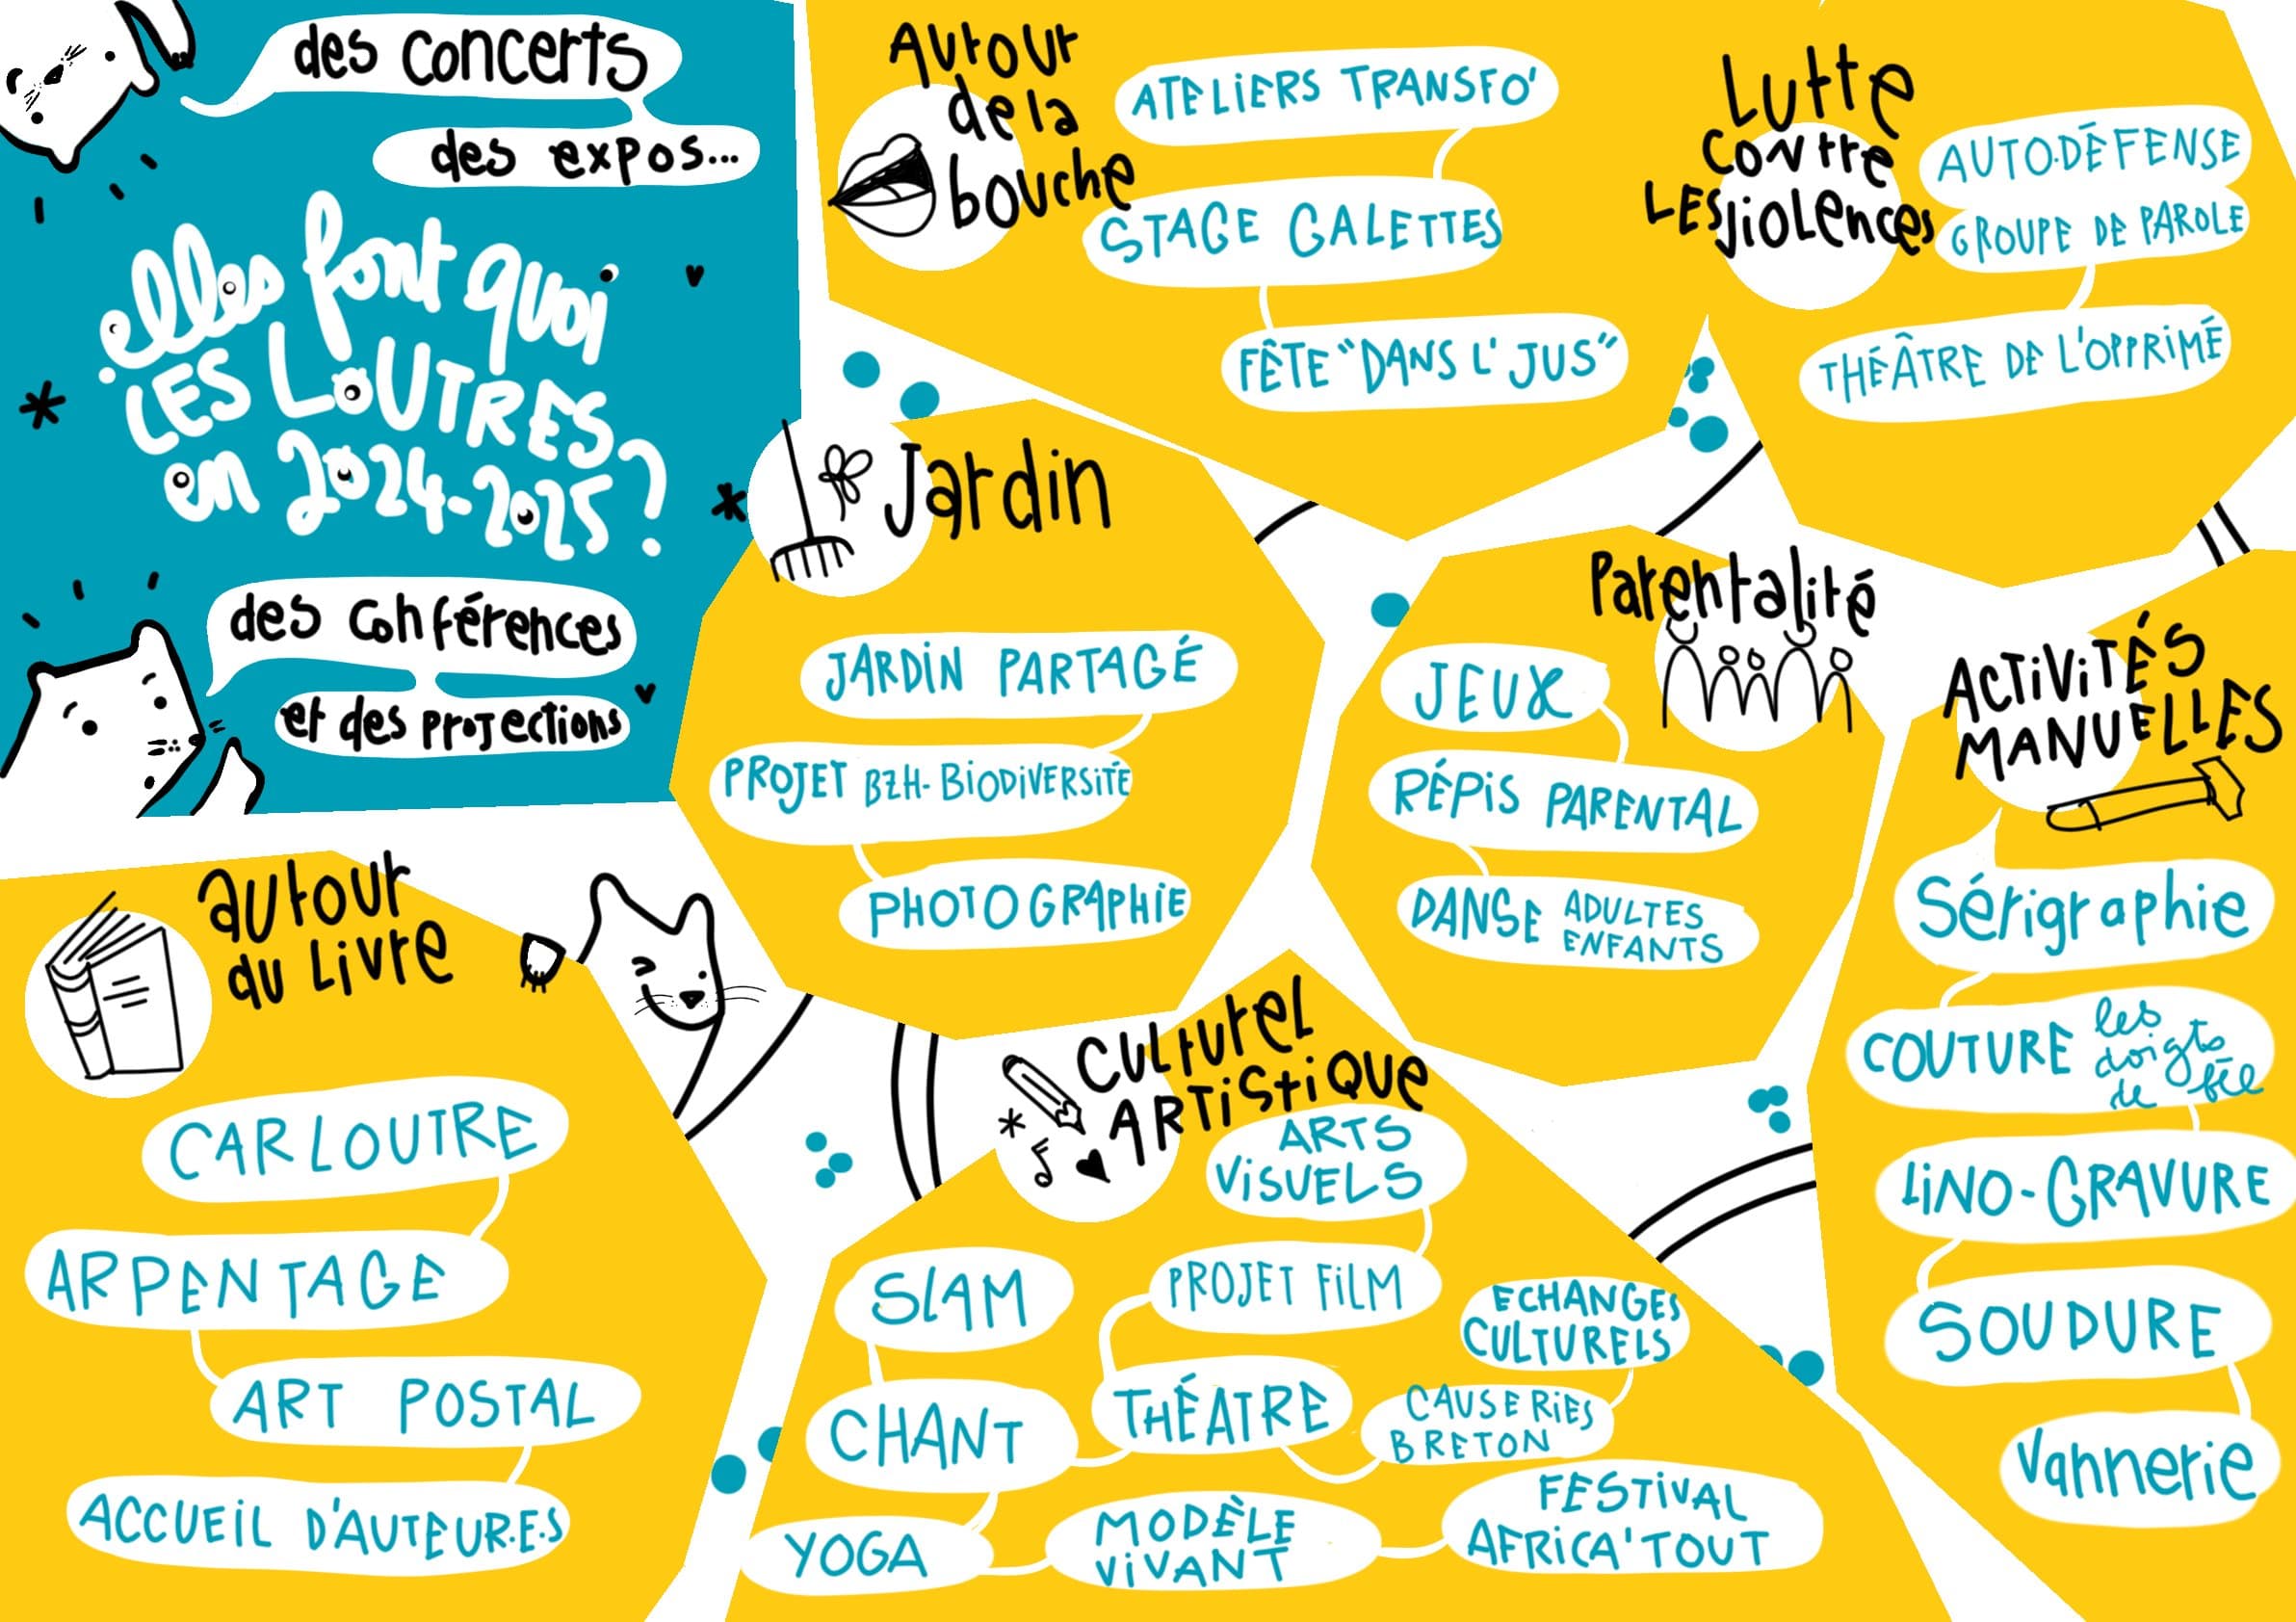 des concerts
des expos...
elles font quoi
LES LOUTRES
en 2024-2025?
des conférences
et des projections
Autour
de la
bouche
ATELIERS TRANSFO'
STAGE GALETTES
FÊTE "DANS L' JUS"
Lutte
contre
LES violences
AUTO-DÉFENSE
GROUPE DE PAROLE
THÉÂTRE DE L'OPPRIMÉ
Jardin
JARDIN PARTAGÉ
PROJET BZH-BIODIVERSITÉ
PHOTOGRAPHIE
Parentalité
JEUX
RÉPIS PARENTAL
DANSE ADULTES
ENFANTS
ACTIVITÉS
MANUELLES
Sérigraphie
COUTURE les
doigts
de fée
LINO-GRAVURE
SOUDURE
Vannerie
autour
du Livre
CARLOUTRE
ARPENTAGE
ART POSTAL
ACCUEIL D'AUTEUR.E.S
CULTUREL
ARTISTIQUE
ARTS
VISUELS
PROJET FILM
SLAM
CHANT
THÉATRE
ECHANGES
CULTURELS
CAUSERIES
BRETON
YOGA
MODÈLE
VIVANT
FESTIVAL
AFRICA'TOUT